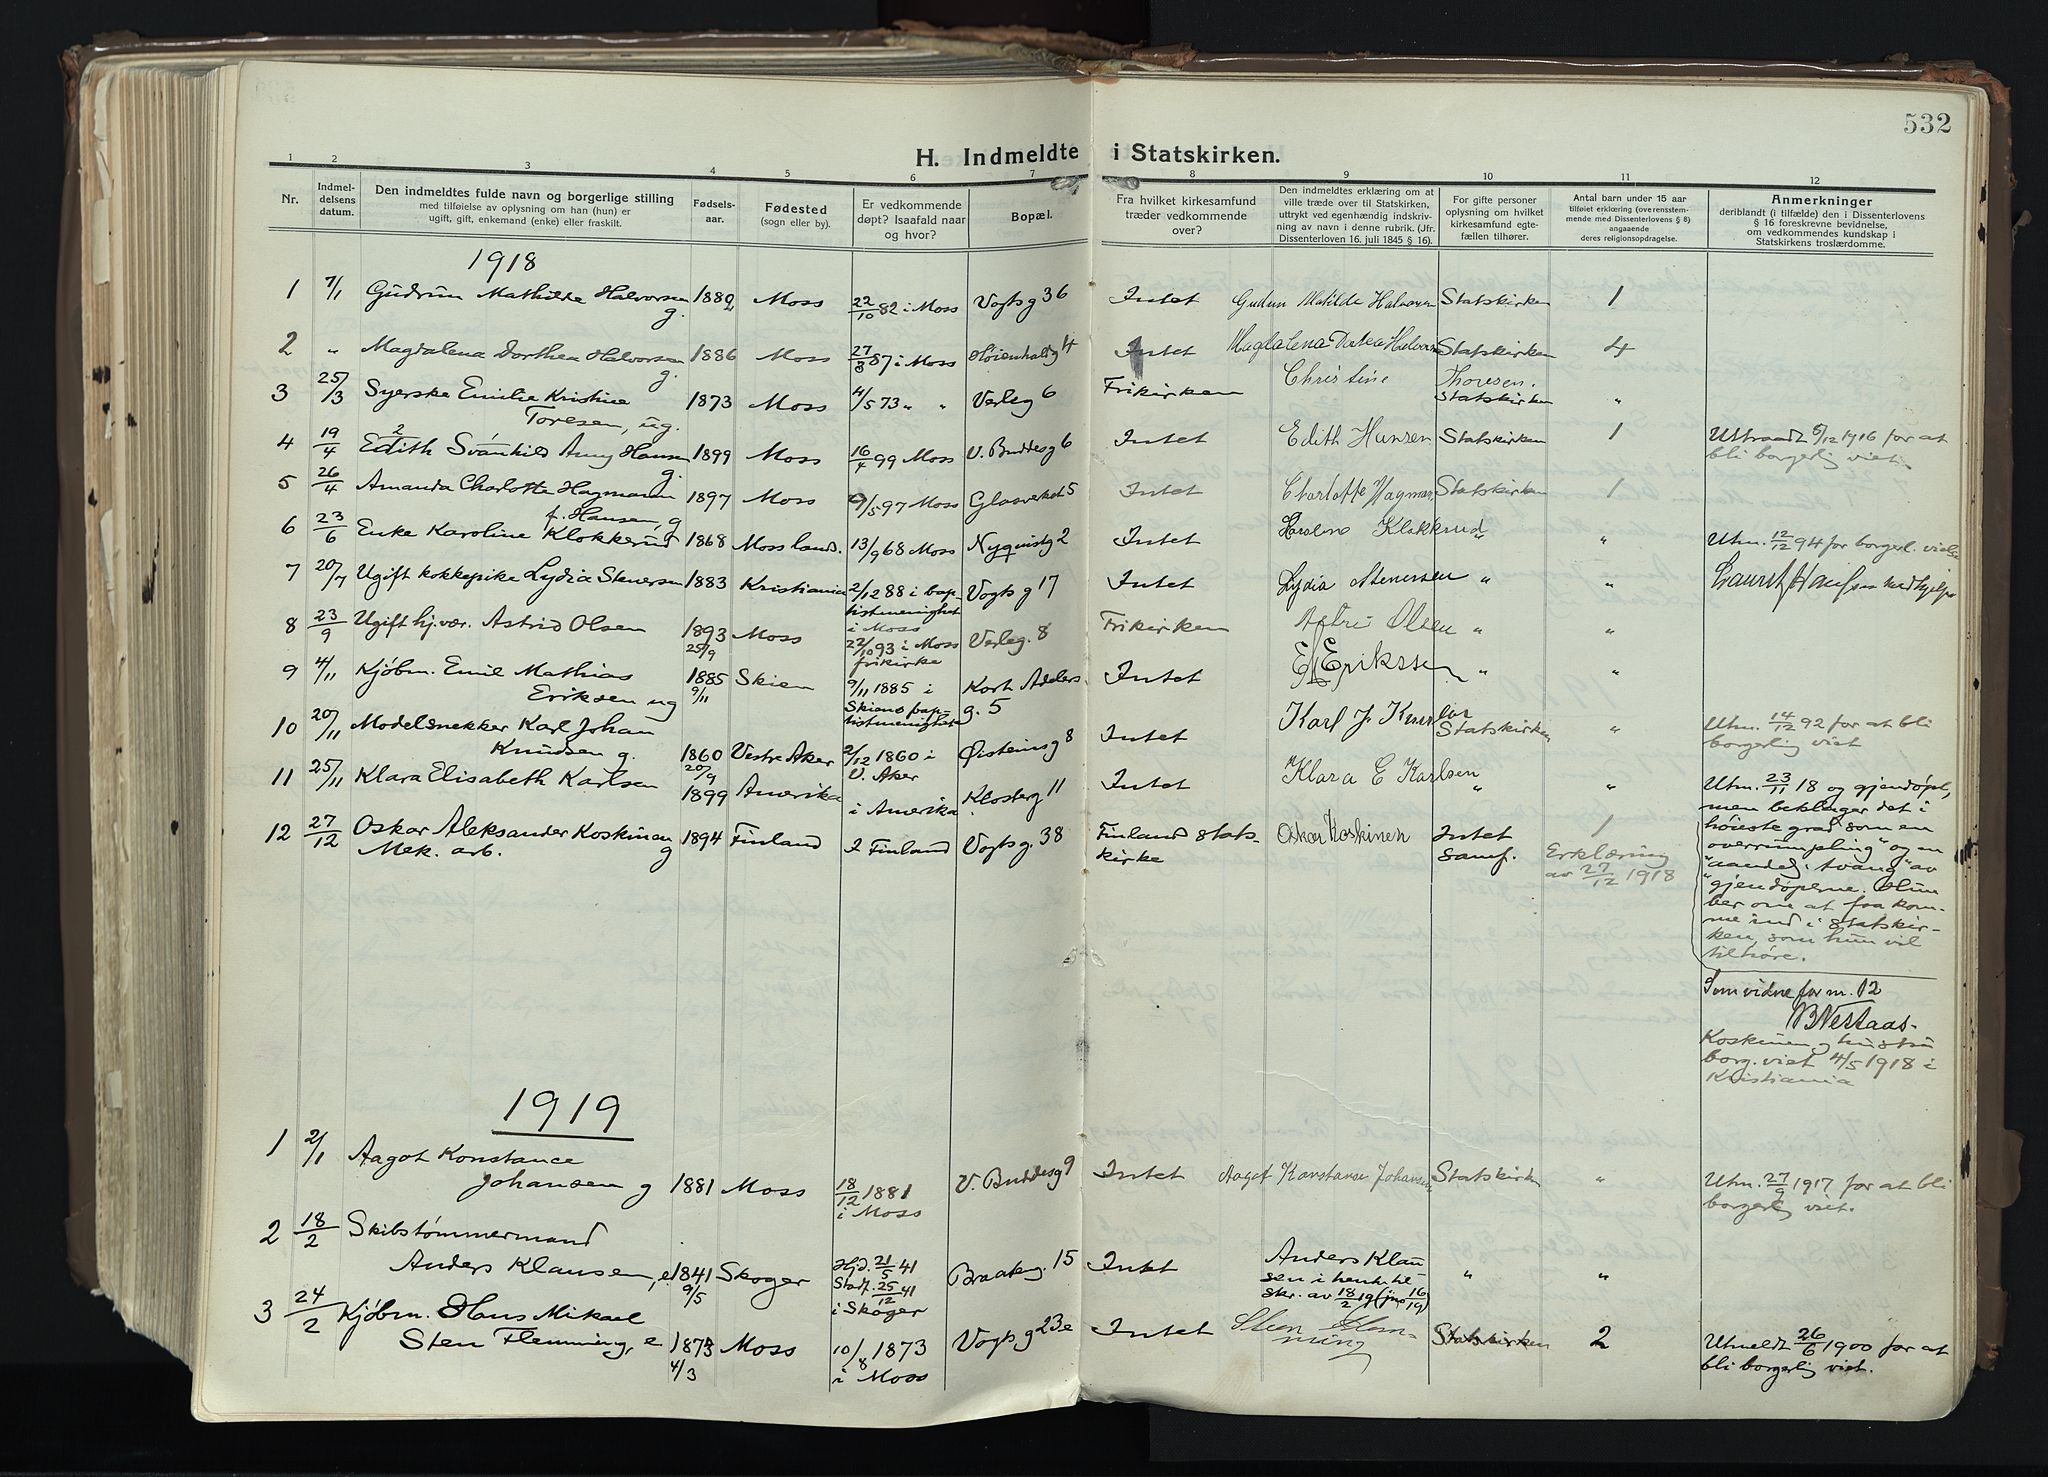 532
H. Indmeldte i Statskirken.
1 2 3 4 5 6 7 8 9 10 11 12
Nr.
Indmel-
delsens
datum.
Den indmeldtes fulde navn og borgerlige stilling
med tilføielse av oplysning om han (hun) er
ugift, gift, enkemand (enke) eller fraskilt.
Fødsels-
aar.
Fødested
(sogn eller by).
Er vedkommende
døpt? Isaafald naar
og hvor?
Bopæl.
Fra hvilket kirkesamfund
træder vedkommende
over?
Den indmeldtes erklæring om at
ville træde over til Statskirken,
uttrykt ved egenhændig indskriv-
ning av navn i denne rubrik. (Jfr.
Dissenterloven 16. juli 1845 § 16).
For gifte personer
oplysning om hvilket
kirkesamfund egte-
fællen tilhører.
Antal barn under 15 aar
tilføiet erklæring (overensstem-
mende med Dissenterlovens § 8)
angaaende
deres religionsopdragelse.
Anmerkninger
deriblandt (i tilfælde) den i Dissenterlovens
§ 16 foreskrevne bevidnelse,
om vedkommendes kundskap i
Statskirkens troslærdomme.
1918
1 7/1 Gudrun Mathilde Halvorsen g. 1882 Moss 22/10 82 i Moss Vogts g 36 Intet Gudrun Matilde Halvorsen Statskirken 1
2 " Magdalena Dorthea Halvorsen g. 1886 Moss 27/3 87 i Moss Høienhaldg 4 Intet Magdalena Dortea Halvorsen Statskirken 4
3 25/3 Syerske Emilie Kristine
Toresen, ug. 1873 Moss 4/5 73 " " Verleg 6 Frikirken Christine Thoresen. Statskirken "
4 19/4 Edith Svanhild Anny Hansen g. 1899 Moss 16/4 99 Moss V. Buddesg 6 Intet Edith Hansen Statskirken 1 Uttraadt 5/12 1916 for at
bli borgerlig viet.
5 26/4 Amanda Charlotte Hagmann
f. Hansen, g 1897 Moss 9/5 97 Moss Glasverket 5 Intet Charlotte Hagman Statskirken 1
6 23/6 Enke Karoline Klokkerud 1868 Moss lands. 13/9 68 Moss Nyquistg 2 Intet Karoline Klokkerud " " Utm. 12/12 94 for borgerl. vielse
7 20/7 Ugift kokkepike Lydia Stenersen 1883 Kristiania 2/12 88 i bap-
tistmenighet
i Moss Vogts g 17 Intet Lydia Stenersen " "
8 23/9 Ugift hj.vær. Astrid Olsen 1893
25/9 Moss 22/10 93 i Moss
frikirke Verleg. 8 Frikirken Astri Olsen " "
9 4/11 Kjøbm. Emil Mathias
Eriksen ug 1885
9/11 Skien 9/11 1885 i
Skiens bap-
tistmenighet Kort Adelers
g. 5 Intet E. M. Erikssen " "
10 20/11 Modelsnekker Karl Johan
Knudsen g. 1860
20/9 Vestre Aker 2/12 1860 i
V. Aker Øisteinsg 8 Intet Karl J Statskirken " Utm. 14/12 92 for at bli
borgerlig viet
11 25/11 Klara Elisabeth Karlsen 1899 Amerika i Amerika Klosterg 11 Intet Klara E Karlsen " " Utm. 23/11 18 og gjendøpt,
men beklager det i
høieste grad som en
"overrumpling" og en
"aandelig tvang" av
"gjendøperne. Hun
ber om at faa kom-
me ind i statskir-
ken, som hun vil
tilhøre.
12 27/12 Oskar Aleksander Koskinen g
Mek. arb. 1894 Finland I Finland Vogts g. 38 Finland stats-
kirke Oskar Koskinen Intet
samf. 1
Erklæring
av 27/12 1918
Som vidne for nr. 12
B Nestaas.
Koskinen og hustru
borg. viet 4/5 1918 i
Kristiania
1919
1 2/1 Aagot Konstance
Johansen g 1881 Moss 18/12 1881
i Moss V. Buddesg 9 Intet Aagot Konstanse Johansen Statskirken " Utm. 27/9 1917 for at bli
borgerlig viet.
2 18/2 Skibstømmermand
Anders Klausen, e. 1841
9/5 Skoger Hjd. 21/5 41
Stadf. 25/12 41
i Skoger Braateng. 15 Intet Anders Klau
sen i henh. til
skr. av 18/2 19 " "
3 24/2 Kjøbm. Hans Mikael
Sten Flemming, e 1873
4/3 Moss 10/8 1873
i Moss Vogts g 23e Intet Steen Flem-
ming Statskirken 2 Utmeldt 26/6 1900 for at
bli borgerlig viet.